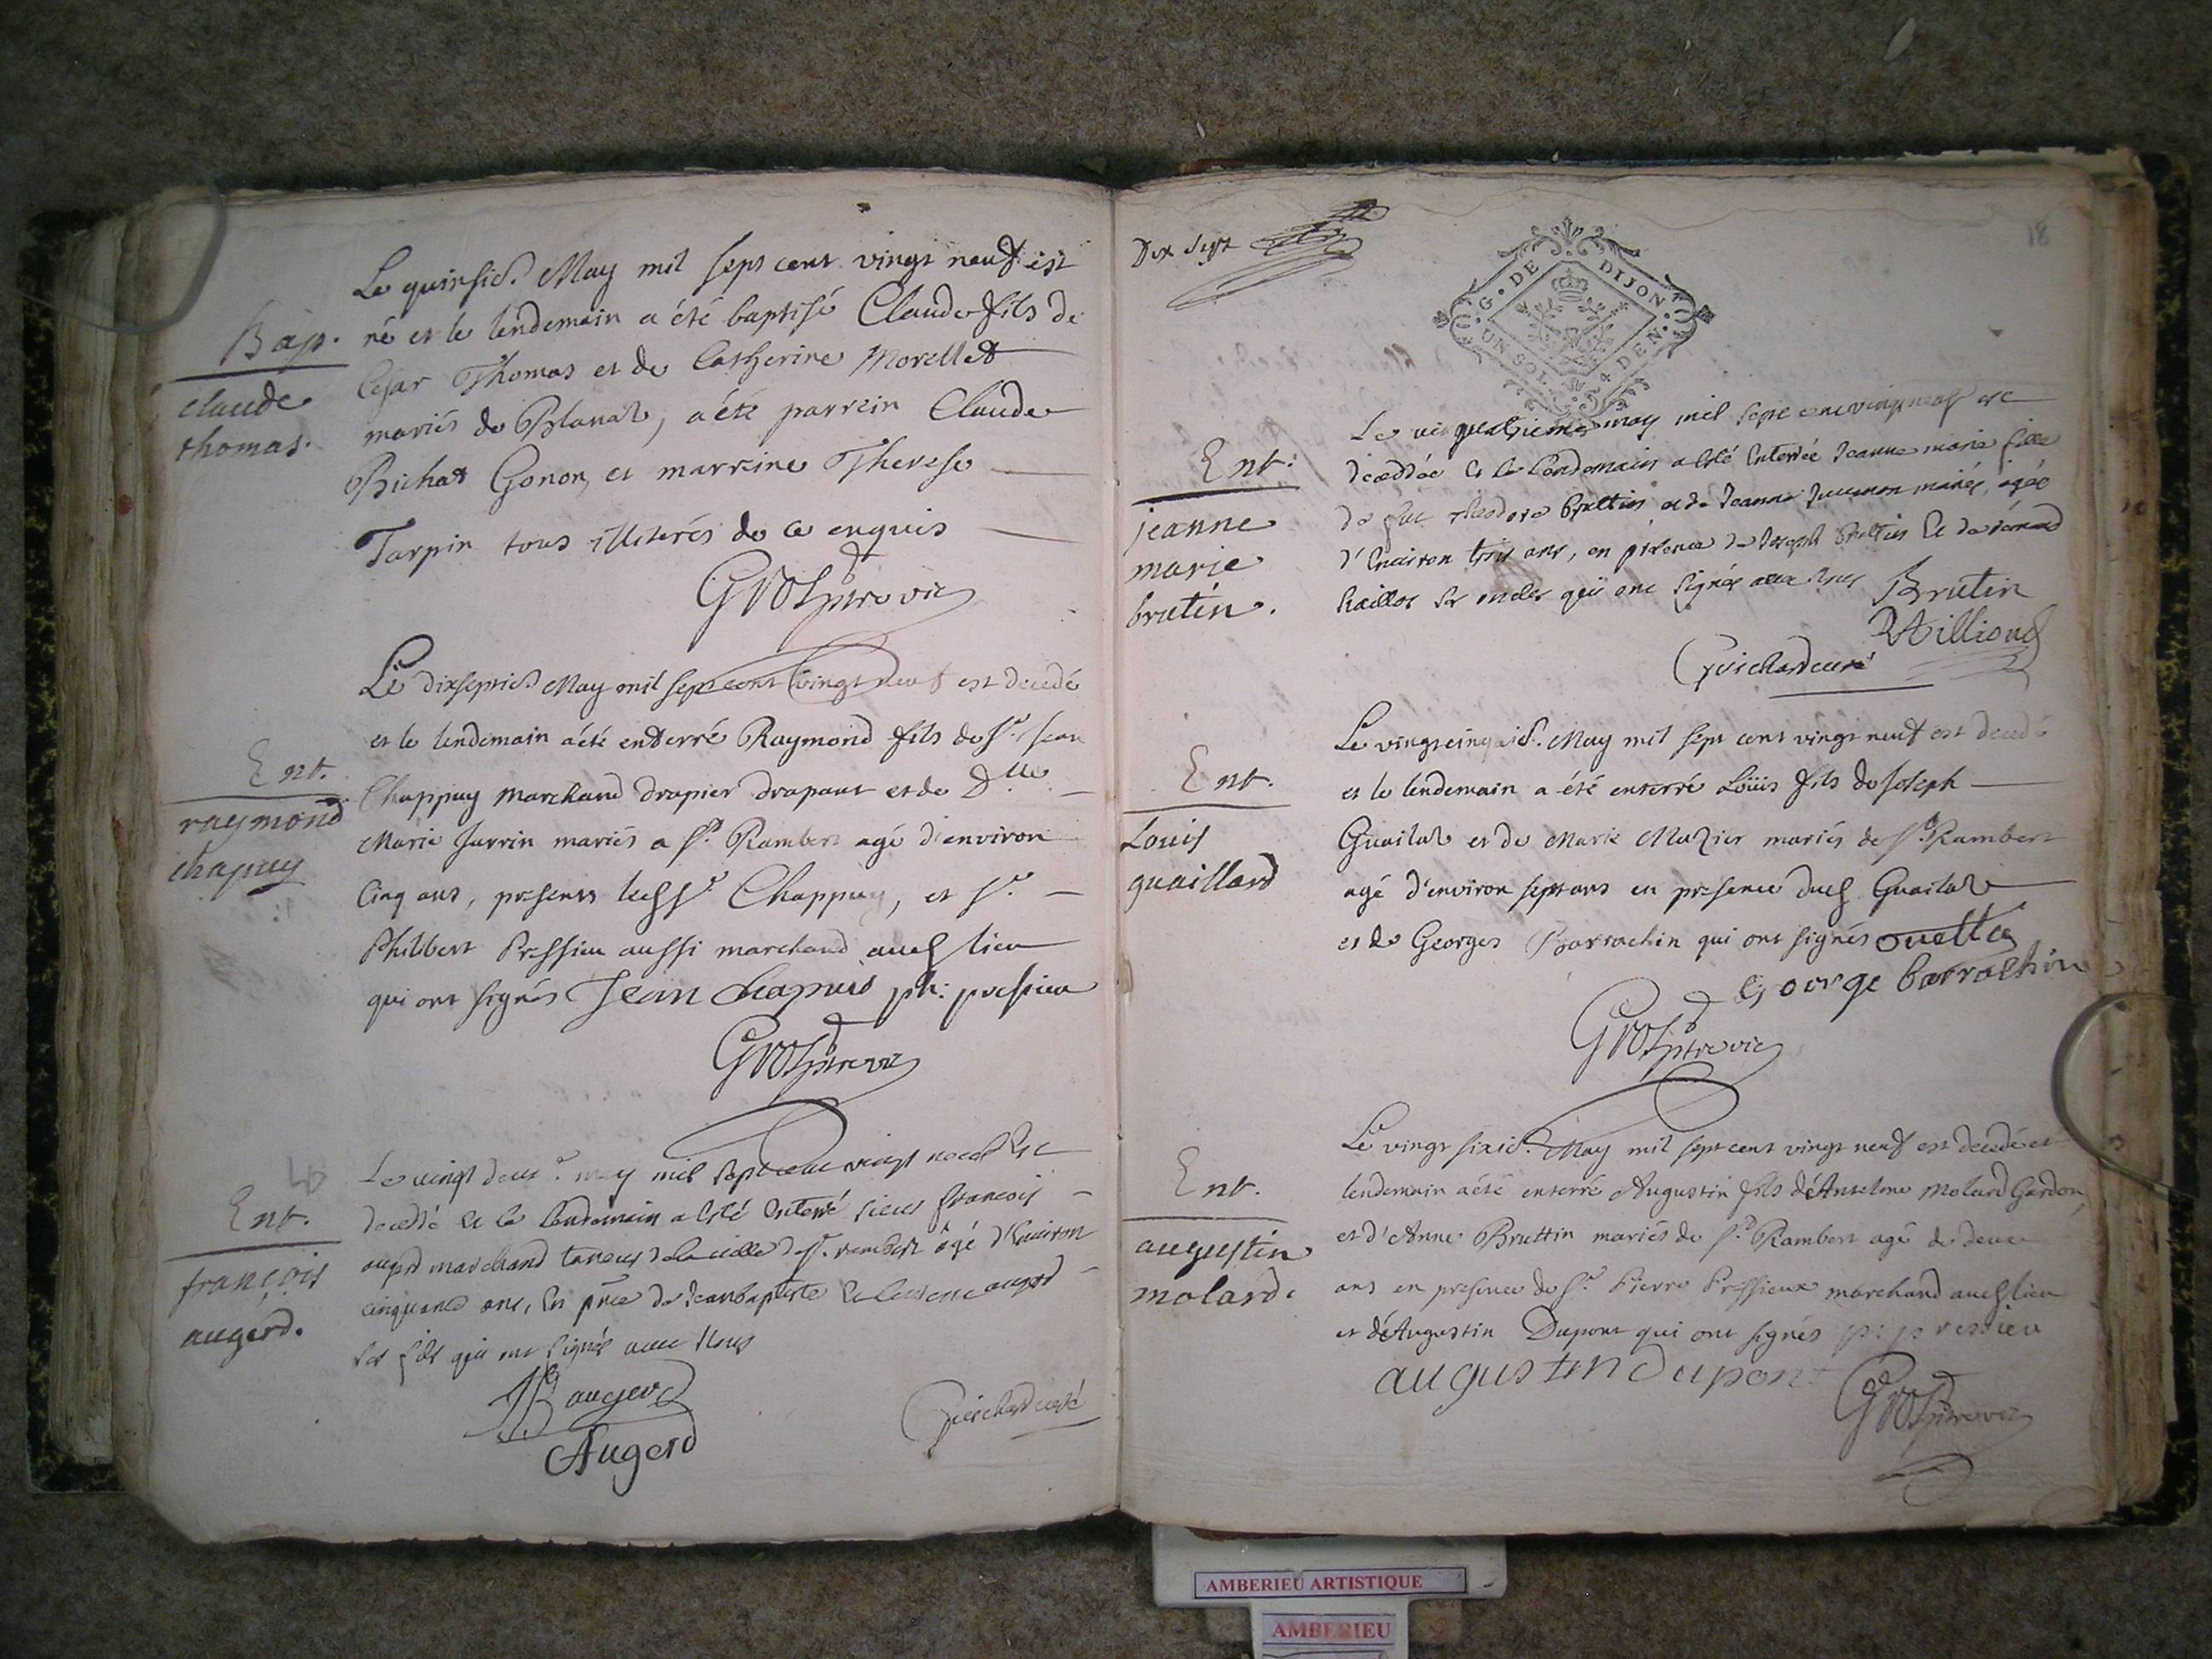 Bap.
claude
thomas.
Le quinsie. May mil sept cent vingt neuf est
né et le lendemain a été baptisé Claude fils de
Cesar Thomas et de Catherine Morellet
mariés de Blanaz, a été parrein Claude
Bichat Gonon, et marreine Therese
Tarpin tous illiterés de ce enquis
Ent.
raymond
chapuy
Le dixseptie May mil sept cent vingt neuf est decedé
et le lendemain a été enterré Raymond fils de Sr. Jean
Chappuy marchand drapier drapant et de Dlle
Marie Jarrin mariés a St. Rambert agé d'environ
Cinq ans, presents led Sr. Chappuy, et Sr.
Philibert Pressieu aussi marchand aud lieu
qui ont signés Jean Chapuis ph: pressieu
Ent.
françois
augerd.
Le vingt deux may mil sept cent vingt neuf est
decedé et le lendemain a esté enterré sieur francois
augerd marchand de la ville de St. rambert âgé d'environ
cinquante ans, en pnce de Jean baptiste et augerd
ses fils qui ont signés avec nous
JB augerd
Augerd
Guichard curé
Dix sept
18
G. DE DIJON
UN SOL 4 DEN.
Ent.
jeanne
marie
brutin.
Le vin quatrieme may mil sept cent vingt neuf est
decedée et le lendemain a esté enterrée Jeanne marie fille
de feu theodore Bruttin et de Jeanne mariés, agée
d'environ trois ans, en présence de Joseph Bruttin et de
ses oncles qui ont signés avec nous Brutin
Guichard curé
Ent.
Louis
guaillard
Le vingtcinquie. May mil sept cent vingt neuf est decedé
et le lendemain a été enterré Loüis fils de Joseph
Guailar et de Marie Mazier mariés de St. Rambert
agé d'environ sept ans en presence dud Guailar
et de Georges Barrachin qui ont signés
George barrachin
Ent.
augustin
molard.
Le vingt sixie. May mil sept cent vingt neuf est decedé et
lendemain a été enterré Augustin fils d'Anselme Molard Gardon,
et d'Anne Bruttin mariés de St. Rambert agé de deux
ans en presence de Sr. Pierre Pressieux marchand aud lieu
et d'Augustin Dupont qui ont signés p: pressieu
augustin dupont
AMBERIEU ARTISTIQUE
AMBERIEU